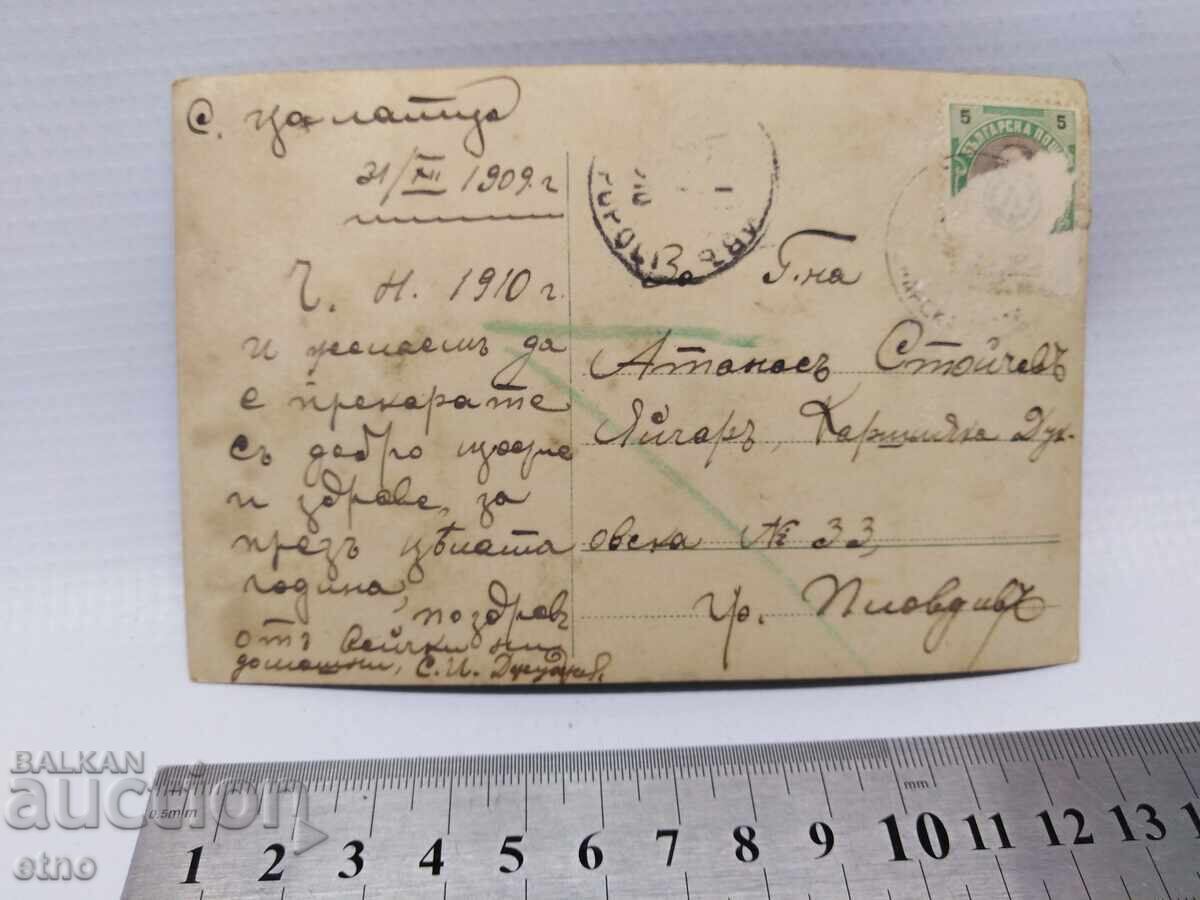 с. Цалапица
21/XII 1909. г
Ч. Н. 1910 г.
и желаемъ да
е прекарате
съ добро щастие
и здраве, за
презъ цѣлата
година,
поздравъ
отъ всички ни
домашни, С. И.
До Г-на
Атанасъ Стойчевъ
Яйчаръ, Каршияка Дук-
овска № 33,
гр. Пловдивъ
5 5
БЪЛГАРСКА ПОЩА
BALKAN
auction
etno
0,5mm
mm
1 2 3 4 5 6 7 8 9 10 11 12 13